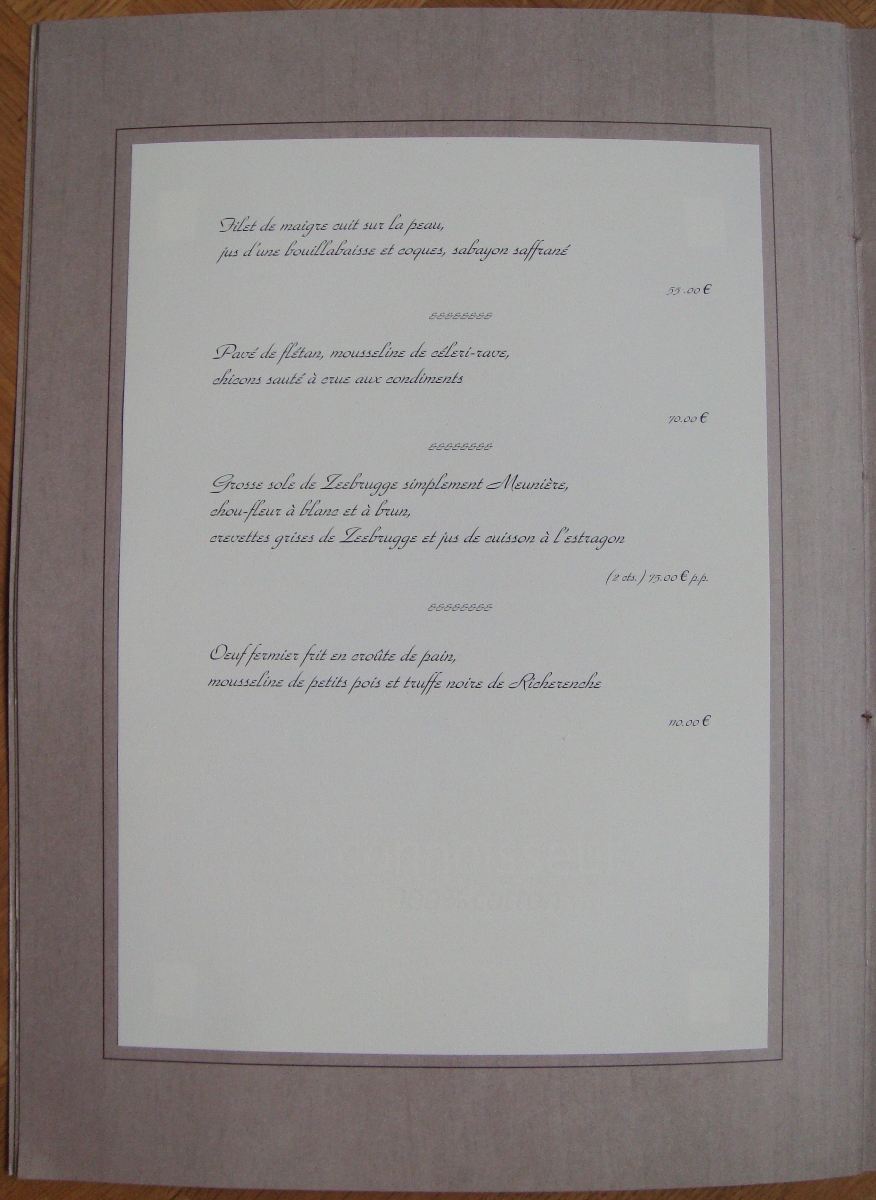 Filet de maigre cuit sur la peau,
jus d'une bouillabaisse et coques, sabayon saffrané
55.00 €
&&&&&&&&
Pavé de flétan, mousseline de céleri-rave,
chicons sauté à crue aux condiments
70.00 €
&&&&&&&&
Grosse sole de Zeebrugge simplement Meunière,
chou-fleur à blanc et à brun,
crevettes grises de Zeebrugge et jus de cuisson à l'estragon
(2 cts.) 75.00 € p.p.
&&&&&&&&
Oeuf fermier frit en croûte de pain,
mousseline de petits pois et truffe noire de Richerenche
110.00 €